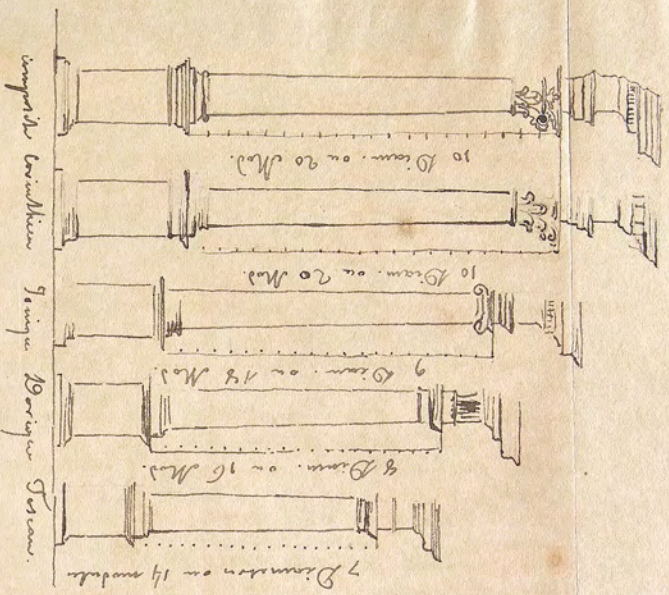 composite Corinthien Ionique Dorique Toscan.
10 Diam. ou 20 Mod.
10 Diam. ou 20 Mod.
9 Diam. ou 18 Mod.
8 Diam. ou 16 Mod.
7 Diametres ou 14 modules